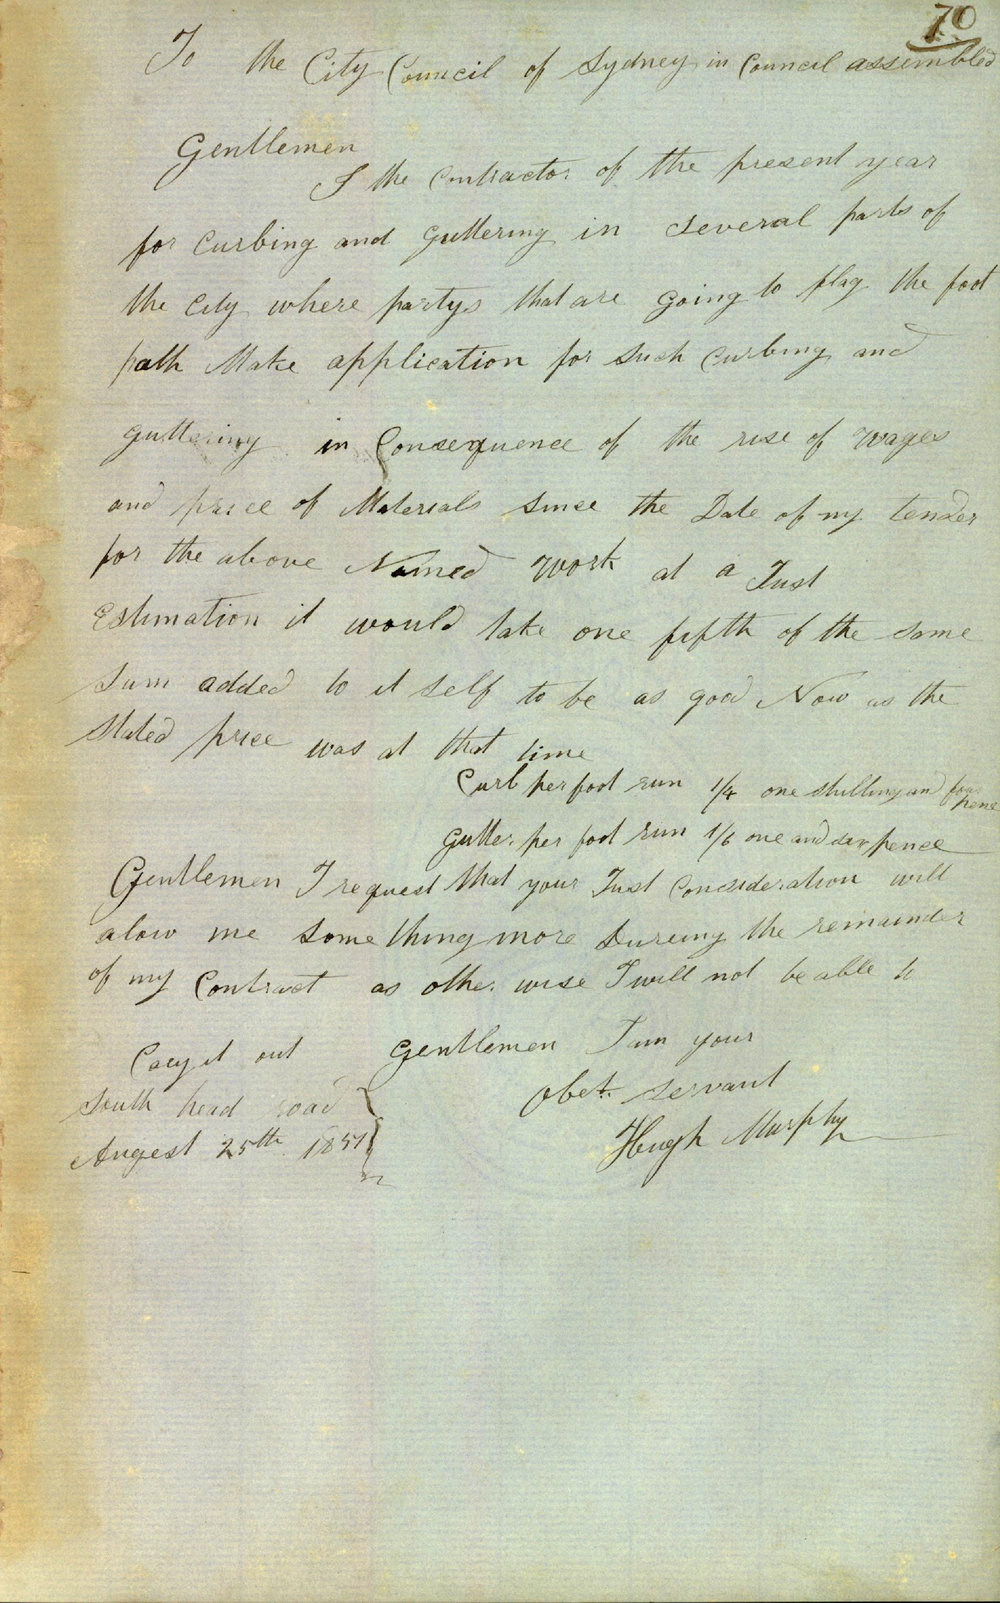 70
To the City Council of Sydney in Council assembled
Gentlemen
I the Contractor of the present year
for Curbing and Guttering in several parts of
the City where partys that are going to flag the foot
path Make application for such Curbing and
guttering in Consequence of the rise of wages
and price of Materials since the Date of my tender
for the above Named Work at a Just
Estimation it would take one fifth of the same
Sum added to it self to be as good Now as the
Stated price was at that time
Curb per foot run 1/4 one shilling and four
pence
Gutter per foot run 1/6 one and six pence
Gentlemen I request that your Just Consideration will
alow me some thing more Dureing the remainder
of my Contract as other wise I will not be able to
Cary it out Gentlemen I am your
South head road Obet. servant
Augest 25th 1851 Hugh Murphy